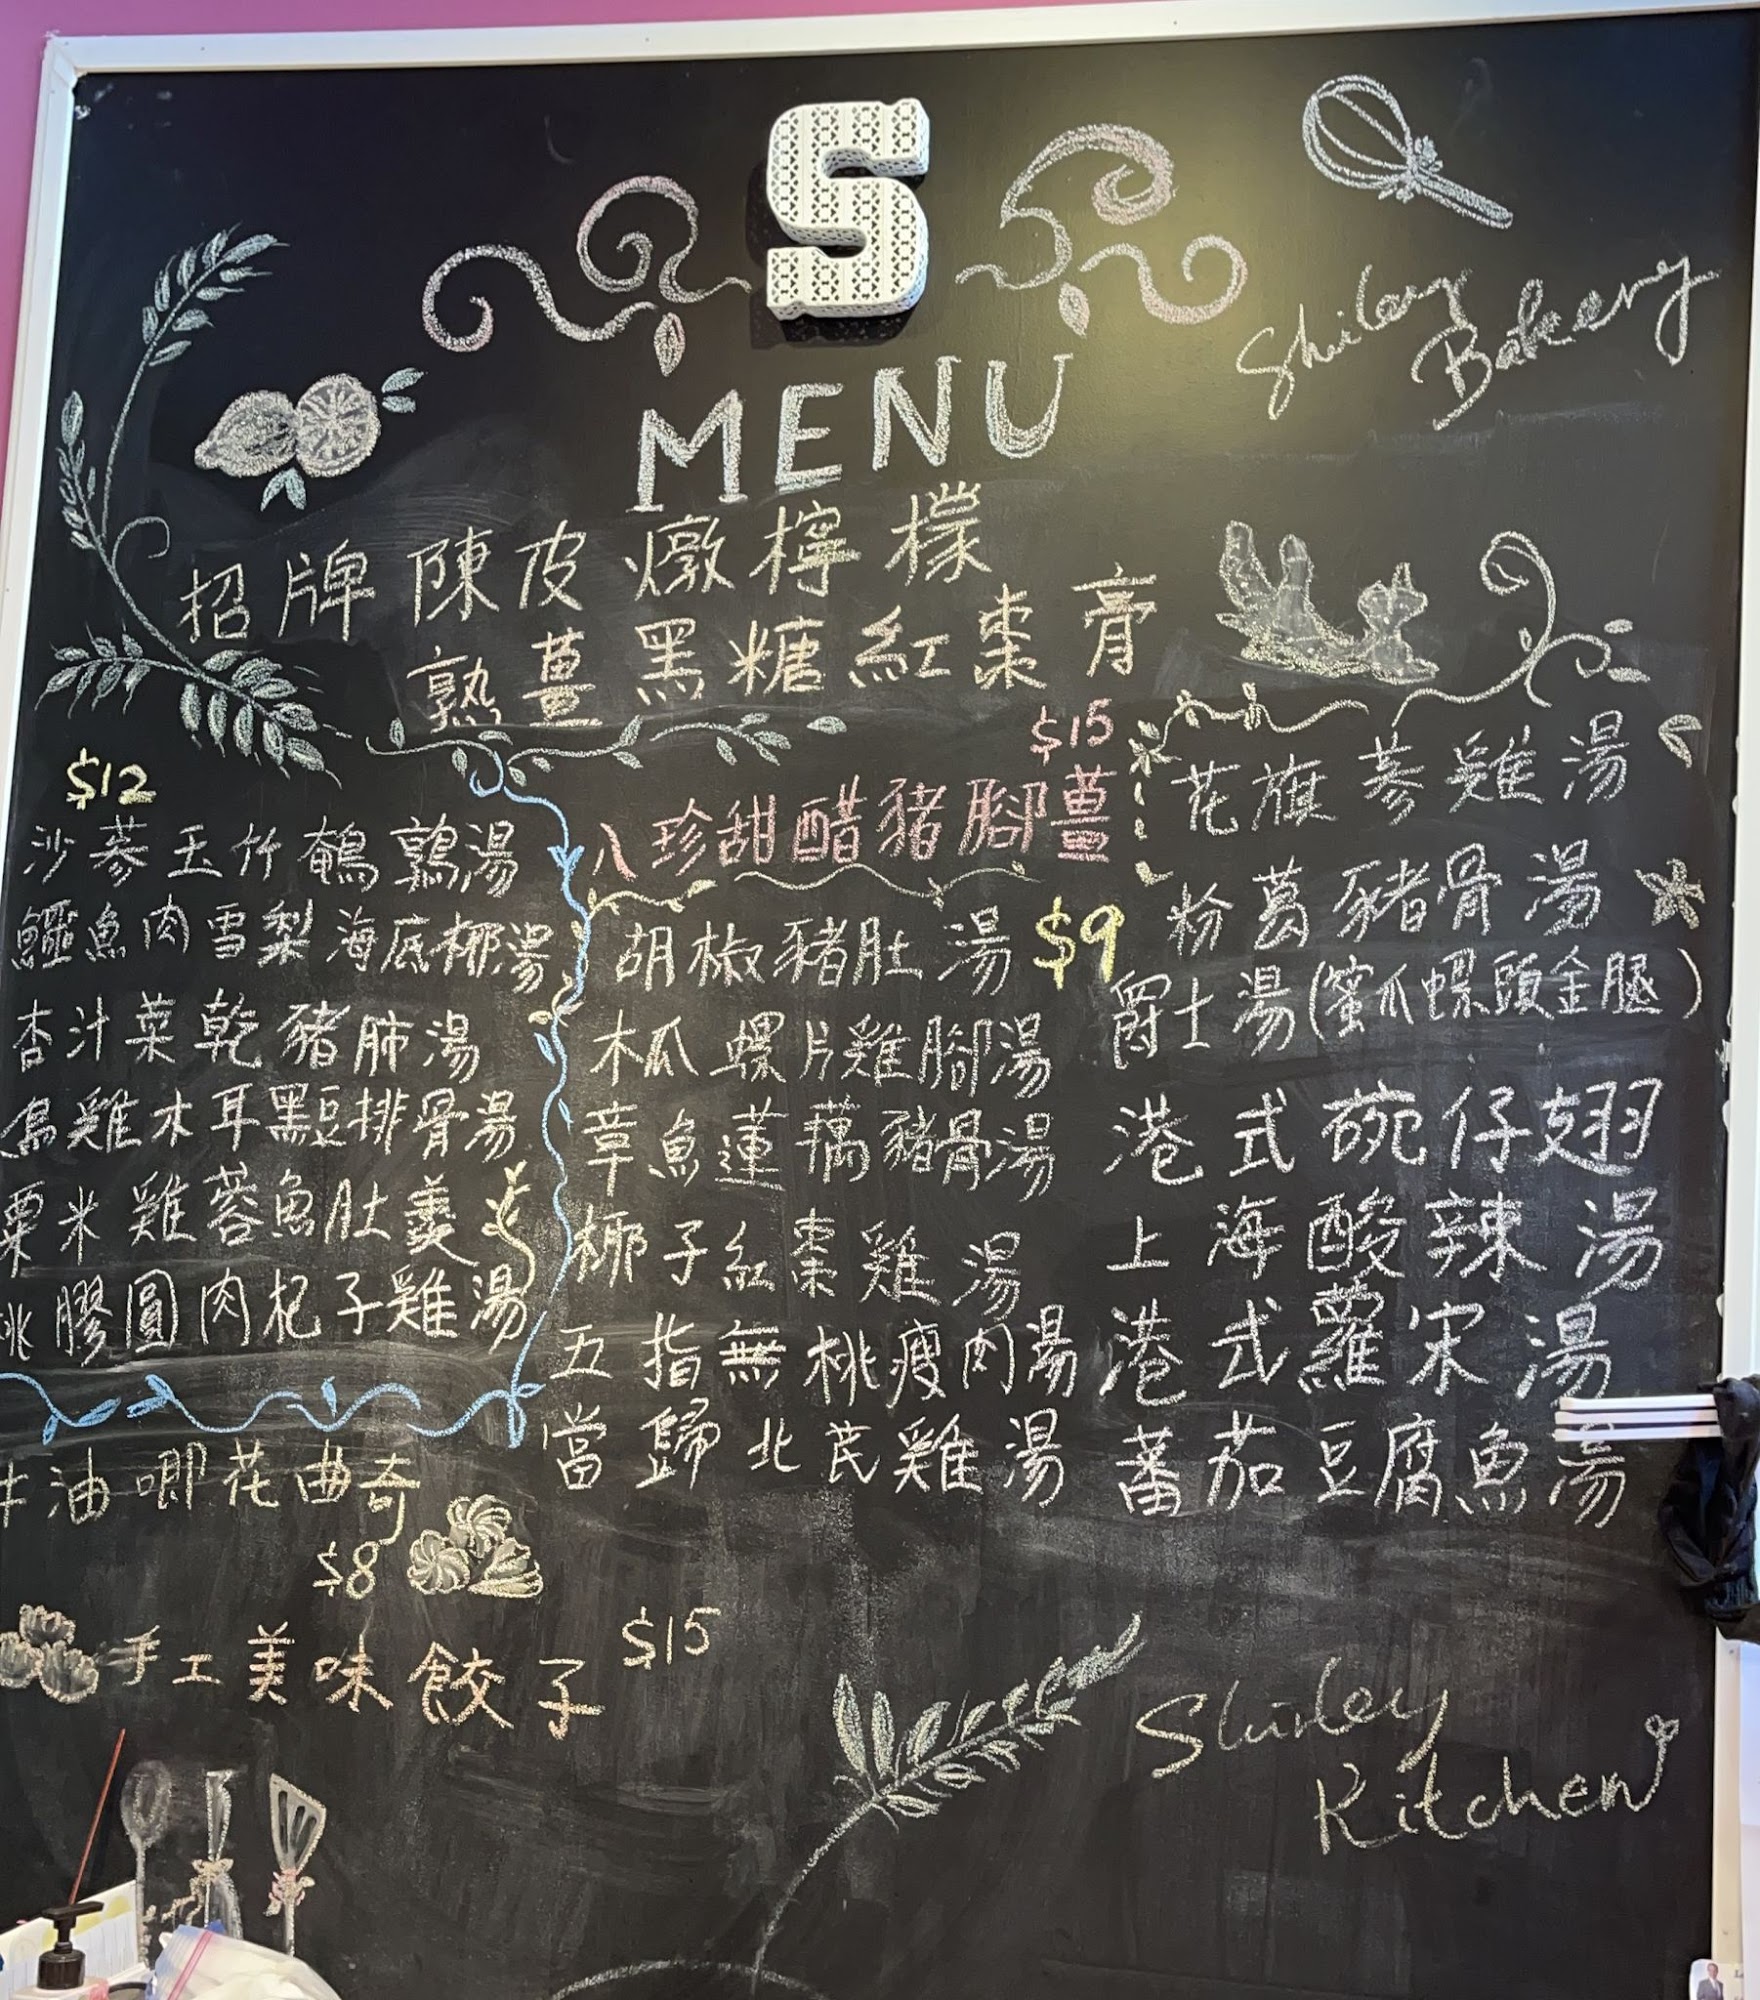 S
Shirley
Bakery
MENU
招牌陳皮燉檸檬
熟薑黑糖紅棗膏
$12
沙蔘玉竹鵪鶉湯
鱷魚肉雪梨海底椰湯
杏汁菜乾豬肺湯
烏雞木耳黑豆排骨湯
粟米雞蓉魚肚羹
桃膠圓肉杞子雞湯
$15
八珍甜醋豬腳薑
胡椒豬肚湯 $9
木瓜螺片雞腳湯
章魚蓮藕豬骨湯
椰子紅棗雞湯
五指無桃瘦肉湯
當歸北芪雞湯
花旗蔘雞湯
粉葛豬骨湯
爵士湯(蜜瓜螺頭金腿)
港式碗仔翅
上海酸辣湯
港式蘿宋湯
蕃茄豆腐魚湯
牛油唧花曲奇
$8
手工美味餃子 $15
Shirley
Kitchen